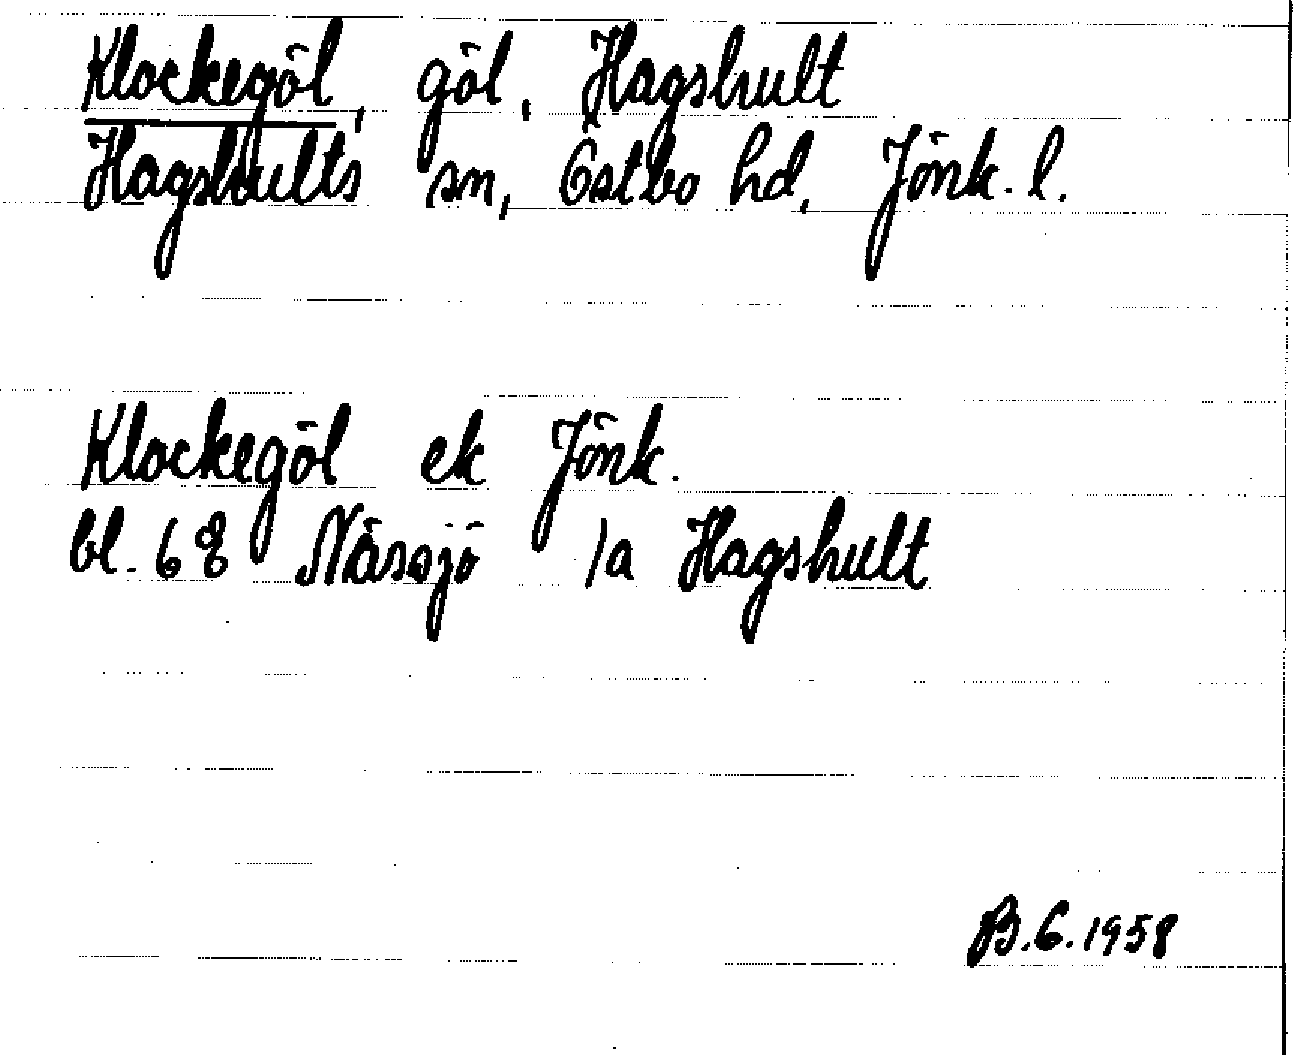 Klockegöl, göl, Hagshult
Hagshults sn, Östbo hd, Jönk. l.
Klockegöl ek Jönk.
bl. 68 Nässjö la Hagshult
B.G. 1958